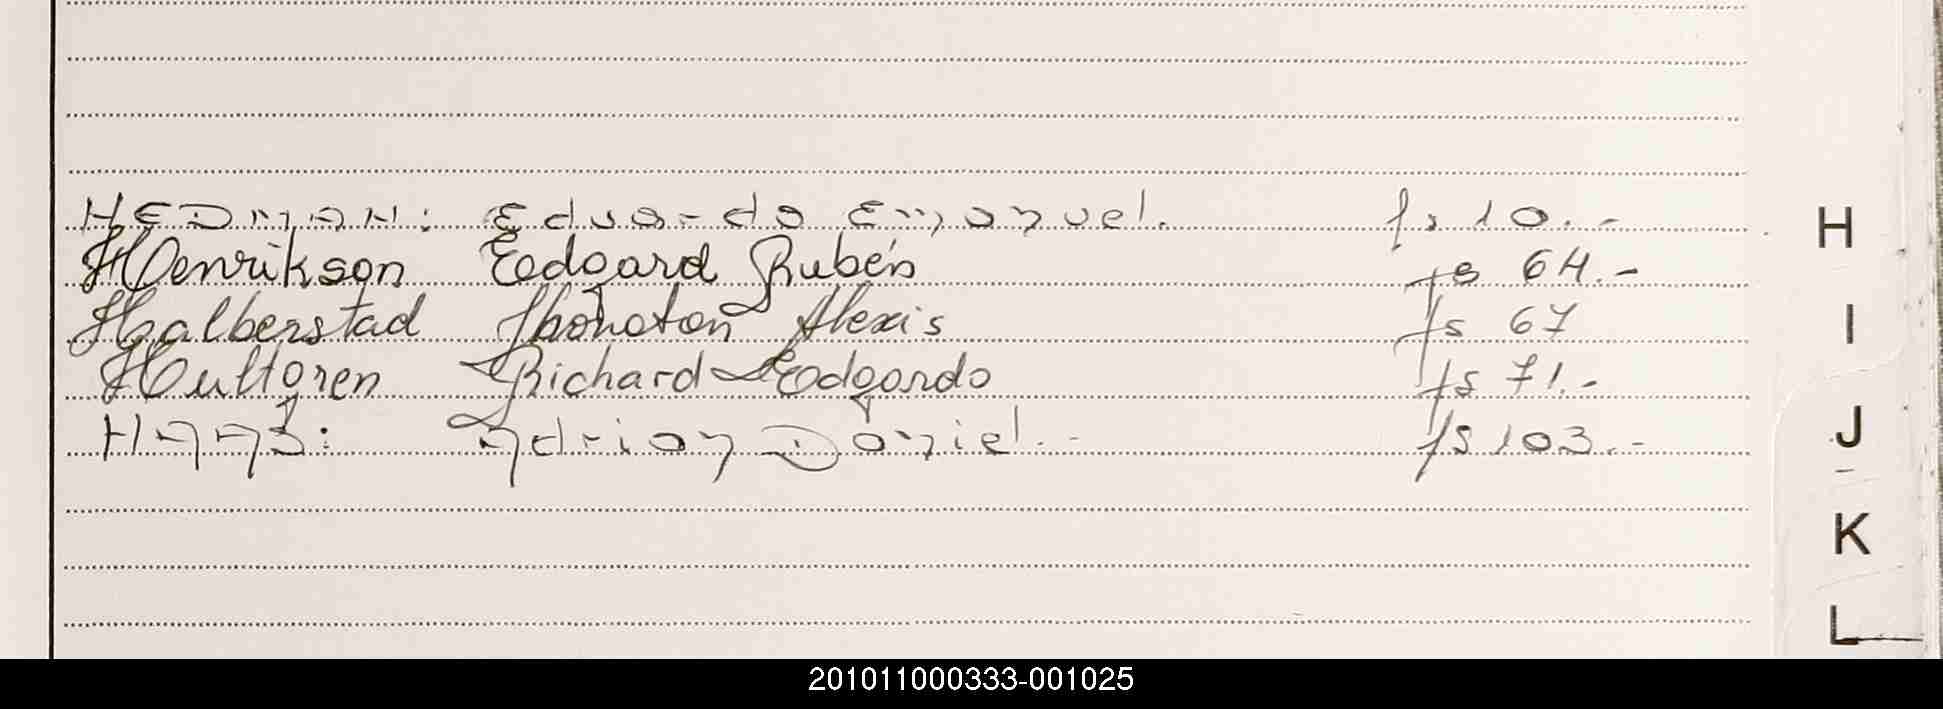 HEDMAN: Eduardo Emanuel. fs 10.-
Henrikson Edgard Rubén fs 64.-
Halberstad Jhonatan Alexis fs 67
Hultgren Richard Edgardo fs 71.-
HAAS: Adrian Daniel.- fs 103.-
H
I
J
K
L
201011000333-001025